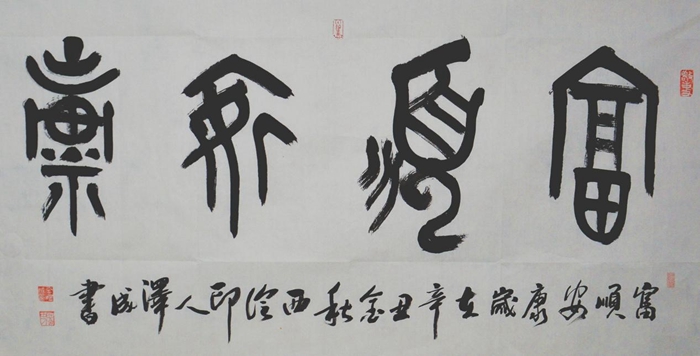 富順安康
富順安康歲在辛丑金秋西泠印人澤成書